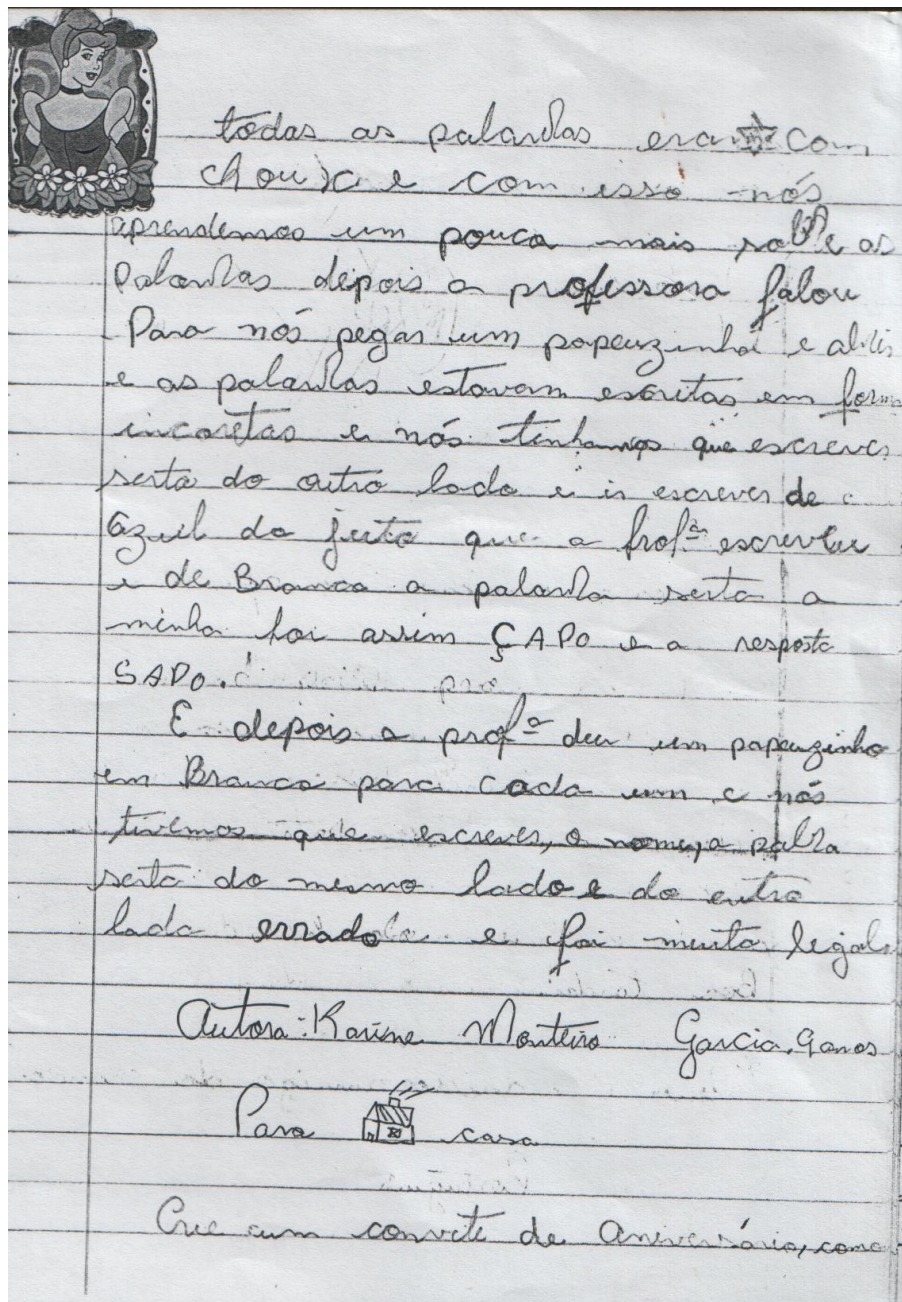 todas as palavras eram com
ch ou x e com isso nós
aprendemos um pouca mais sobre as
Palavras depois a professora falou
Para nós pegar um papeuzinho e abrir
e as palavras estavam escritas em form
incoretas e nós tinhamos que escrever
serta do outro lado e ir escrever de
azul do jeito que a profª escreveu
e de Branco a palavra serta a
minha foi assim ÇAPO e a resposta
SAPO.
E depois a profª deu um papeuzinho
em Branco para cada um e nós
tivemos que escrever, o nome, a palvra
serta do mesmo lado e do outro
lado errado e foi muito legal
Autora: Karine Monteiro Garcia. 9 anos
Para casa
Crie um convite de Aniversário, como